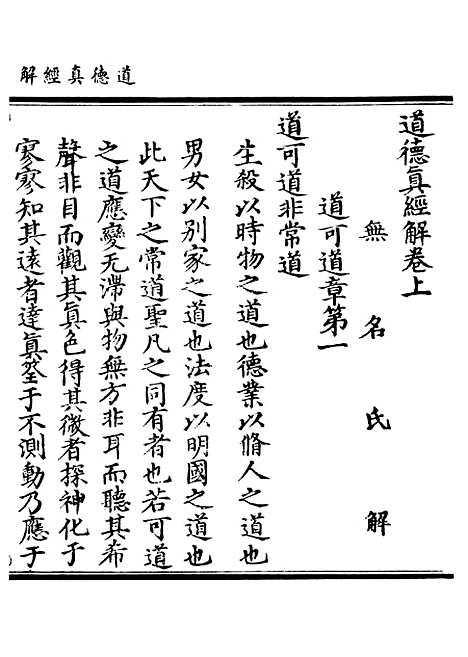 道德真經解
道德眞經解卷上
無名氏解
道可道章第一
道可道非常道
生殺以時物之道也德業以脩人之道也
男女以別家之道也法度以明國之道也
此天下之常道聖凡之同有者也若可道
之道應變无滯與物無方非耳而聽其希
聲非目而觀其眞色得其微者探神化于
寂寥知其遠者達眞筌于不測動乃應于